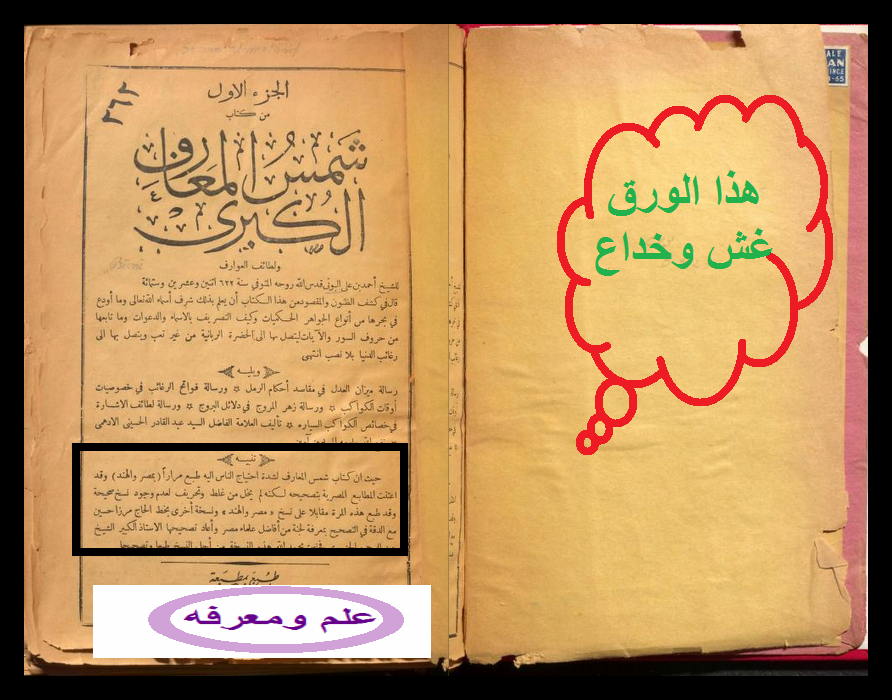 الجزء الاول
من كتاب
٢٦٢
شمس المعارف
الكبرى
ولطائف العوارف
للشيخ أحمد بن على البونى قدس الله روحه المتوفى سنة ٦٢٢ اثنين وعشرين وستمائة
قال فى كشف الظنون والمقصود من هذا الكتاب أن يعلم بذلك شرف أسماء الله تعالى وما أودع
فى بحرها من أنواع الجواهر الحكميات وكيف التصريف بالاسماء والدعوات وما تابعها
من حروف السور والآيات ليتصل بها الى الحضرة الربانية من غير تعب ويتصل بها الى
رغائب الدنيا بلا نصب انتهى
ويليه
رسالة ميزان العدل فى مقاصد أحكام الرمل * ورسالة فواتح الرغائب فى خصوصيات
أوقات الكواكب * ورسالة زهر المروج فى دلائل البروج * ورسالة لطائف الاشارة
فى خصائص الكواكب السياره * تأليف العلامة الفاضل السيد عبد القادر الحسينى الادهمى
تنبيه
حيث ان كتاب شمس المعارف لشدة احتياج الناس اليه طبع مراراً (بمصر والهند) وقد
اعتنت المطابع المصرية بتصحيحه لكنه لم يخل من غلط وتحريف لعدم وجود نسخ صحيحة
وقد طبع هذه المرة مقابلا على نسخ «مصر والهند» ونسخة أخرى بخط الحاج مرزا حسين
مع الدقة فى التصحيح بمعرفة لجنة من أفاضل علماء مصر وأعاد تصحيحها الاستاذ الكبير الشيخ
هذه النسخة من أجل النسخ طبعا وتصحيحا
طبع بمطبعة
علم ومعرفه
هذا الورق
غش وخداع